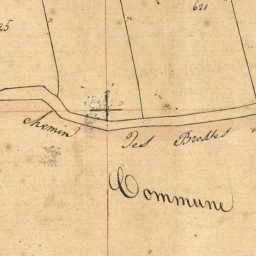 25
621
chemin Des Brostes
Commune